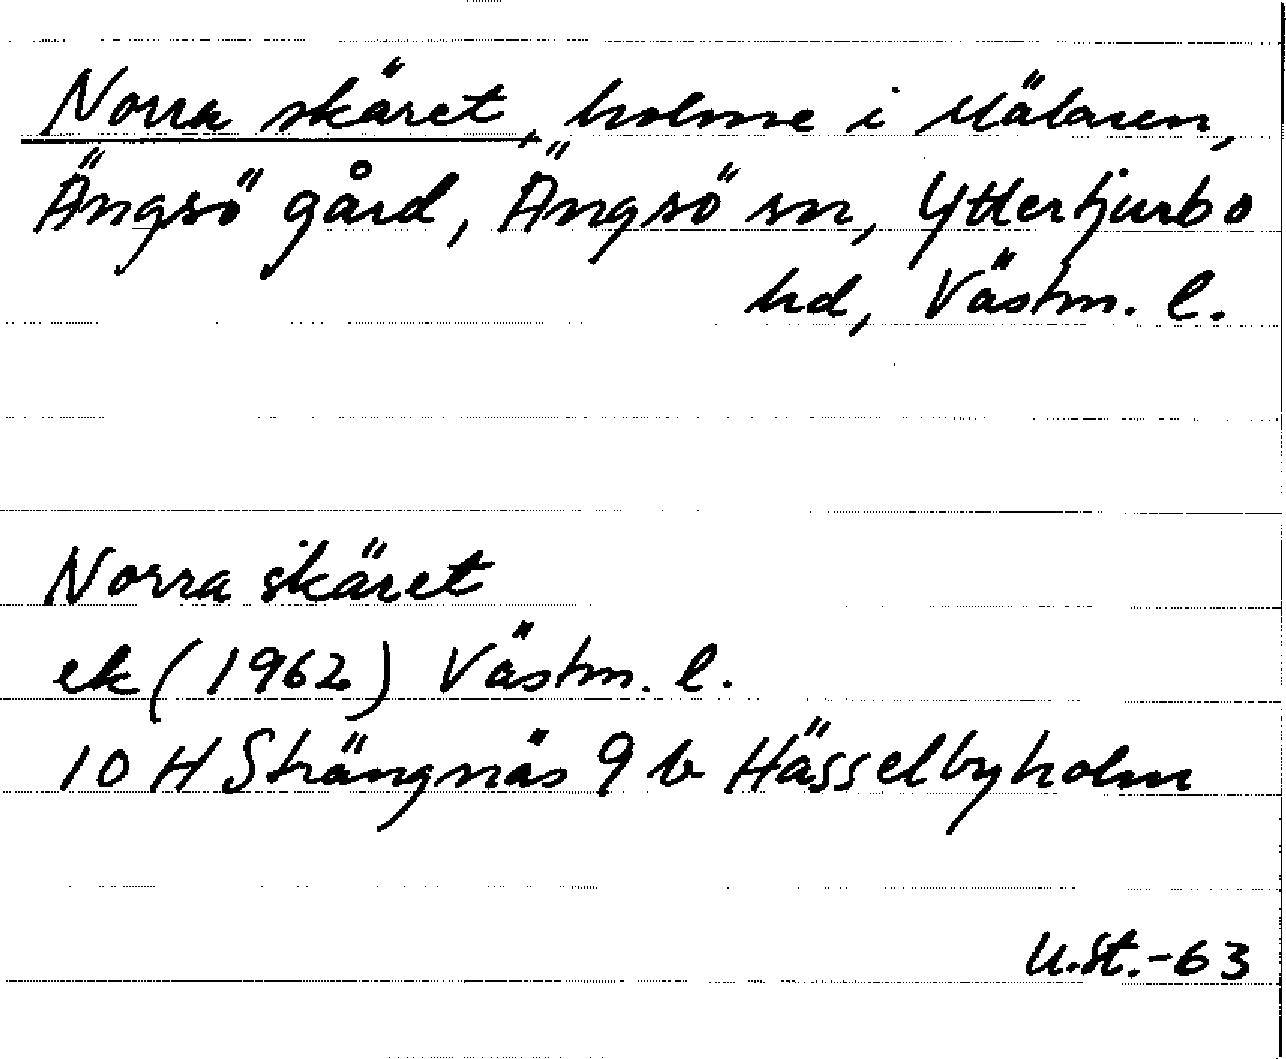 Norra skäret, holme i Mälaren,
Ängsö gård, Ängsö sn, Yttertjurbo
hd, Västm. l.
Norra skäret
ek (1962) Västm. l.
10 H Strängnäs 9 b Hässelbyholm
U.St.-63